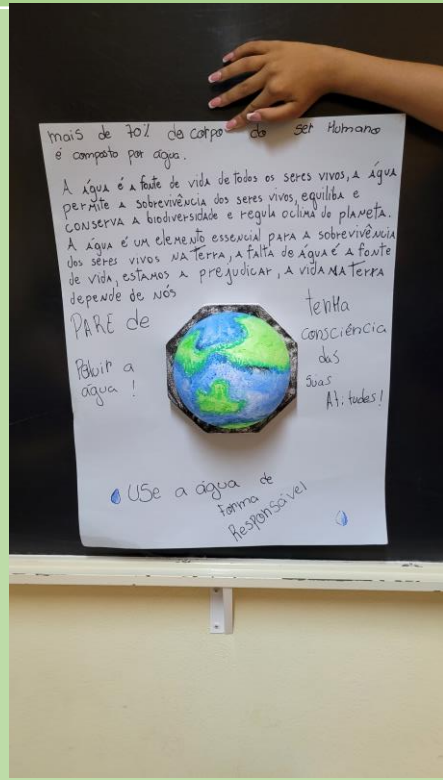 mais de 70% do corpo do ser Humano
é composto por água.
A água é a fonte de vida de todos os seres vivos, a água
permite a sobrevivência dos seres vivos, equiliba e
conserva a biodiversidade e regula o clima do planeta.
A água é um elemento essencial para a sobrevivência
dos seres vivos na Terra, a falta de água é a fonte
de vida, estamos a prejudicar, a vida na Terra
depende de nós
PARE de
Poluir a
água !
tenha
consciência
das
suas
Atitudes!
USe a água de
Forma
Responsável